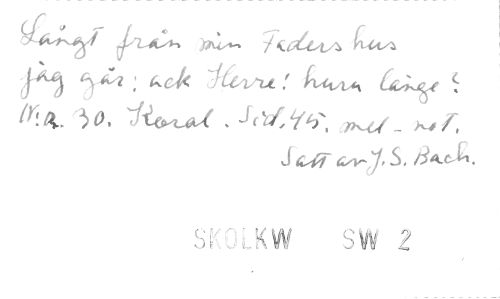 Långt från min Faders hus
jag går; ack Herre! huru länge?
N:a. 30. Koral. Sid. 45. mel-not.
Satt av J.S. Bach.
SKOLKW SW 2